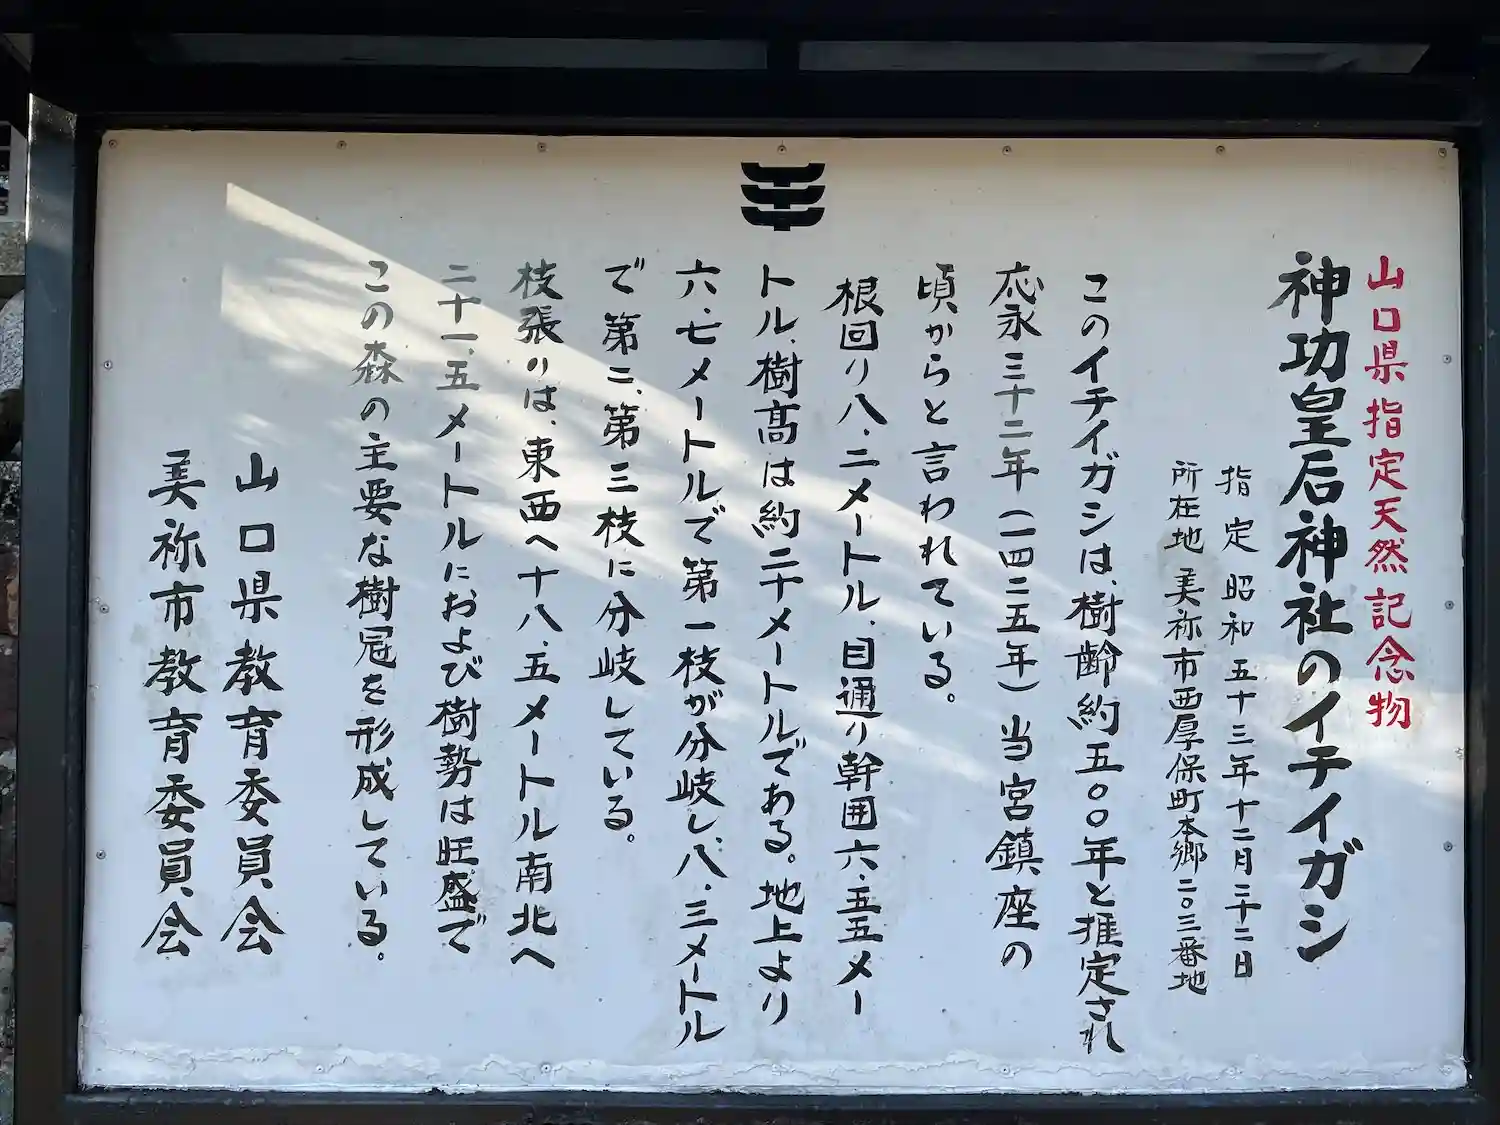 山口県指定天然記念物
神功皇后神社のイチイガシ
指定 昭和五十三年十二月二十二日
所在地 美祢市西厚保町本郷二〇三番地
このイチイガシは、樹齢約五〇〇年と推定され
応永三十二年(一四二五年)当宮鎮座の
頃からと言われている。
根回り八.二メートル、目通り幹囲六.五五メー
トル、樹高は約二十メートルである。地上より
六.七メートルで第一枝が分岐し、八.三メートル
で第二、第三枝に分岐している。
枝張りは、東西へ十八.五メートル南北へ
二十一.五メートルにおよび樹勢は旺盛で
この森の主要な樹冠を形成している。
山口県教育委員会
美祢市教育委員会